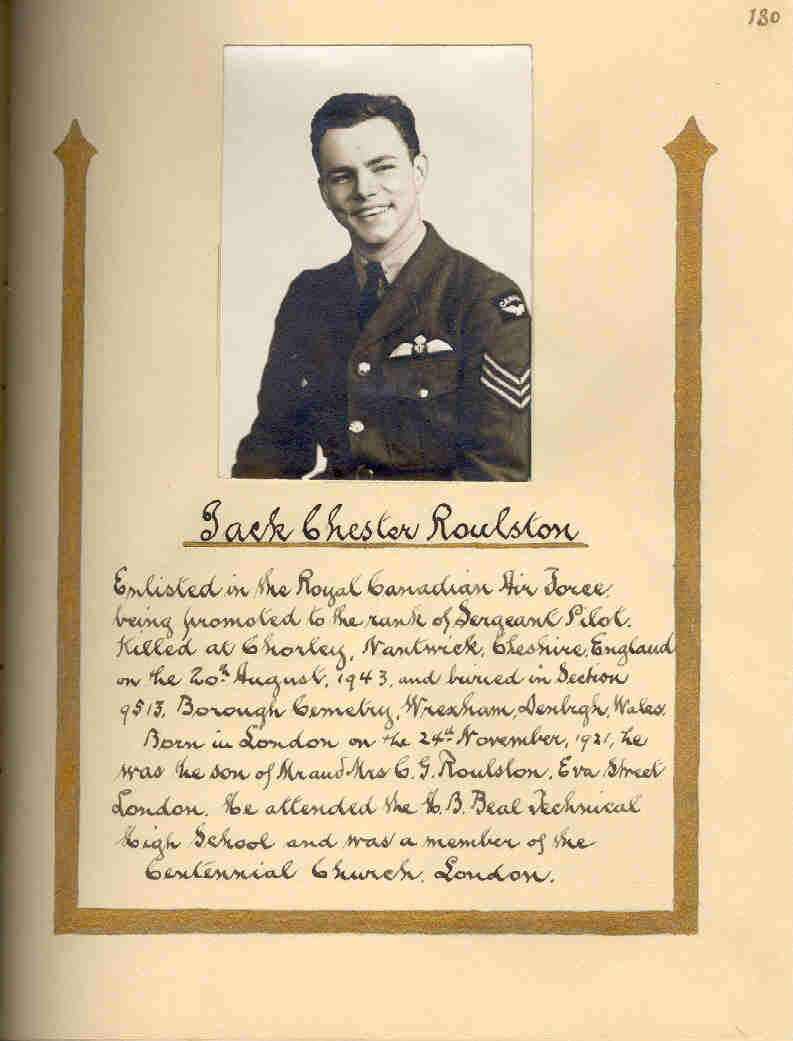 130
CANADA
Jack Chester Roulston
Enlisted in the Royal Canadian Air Force,
being promoted to the rank of Sergeant Pilot.
Killed at Chorley, Nantwick, Cheshire, England
on the 20th August, 1943, and buried in Section
9513, Borough Cemetry, Wrexham, Denbigh, Wales.
Born in London on the 24th November, 1921, he
was the son of Mr and Mrs C. G. Roulston, Eva Street
London. He attended the H. B. Beal Technical
High School and was a member of the
Centennial Church, London.